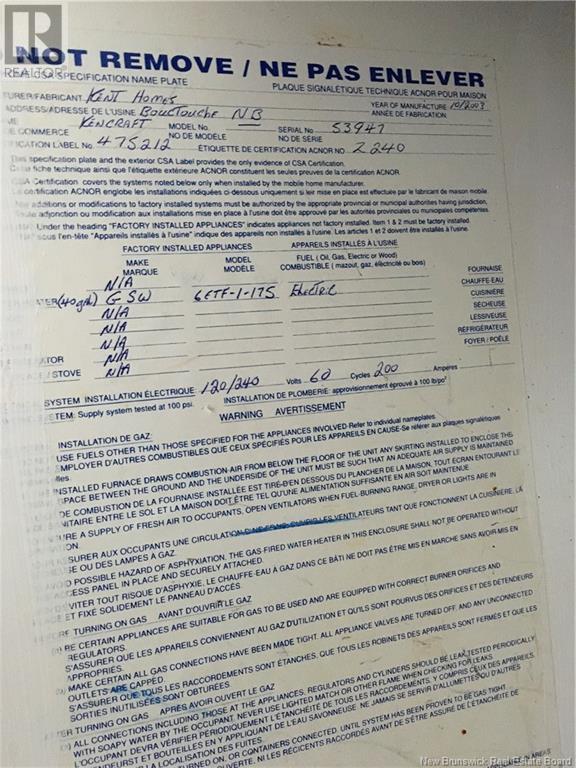 REALTOR
NOT REMOVE / NE PAS ENLEVER
CSA SPECIFICATION NAME PLATE
PLAQUE SIGNALÉTIQUE TECHNIQUE ACNOR POUR MAISON
TURER/FABRICANT. KENT HOMES YEAR OF MANUFACTURE 10/2003
ADDRESS/ADRESSE DE L'USINE BOUCTOUCHE NB ANNÉE DE FABRICATION.
ME KENCRAFT MODEL No. SERIAL No 53947
E COMMERCE NO DE MODÈLE NO DE SÉRIE
ICATION LABEL No. 475212 ÉTIQUETTE DE CERTIFICATION ACNOR NO Z 240
This specification plate and the exterior CSA Label provides the only evidence of CSA Certification.
Cette fiche technique ainsi que l'étiquette extérieure ACNOR constituent les seules preuves de la certification ACNOR.
CSA Certification covers the systems noted below only when installed by the mobile home manufacturer.
La certification ACNOR englobe les installations indiquées ci-dessous uniquement si leur mise en place est effectuée par le fabricant de maison mobile.
Any additions or modifications to factory installed systems must be authorized by the appropriate provincial or municipal authorities having jurisdiction.
Toute adjonction ou modification aux installations mises en place à l'usine doit être approuvée par les autorités provinciales ou municipales compétentes.
Under the heading "FACTORY INSTALLED APPLIANCES" indicates appliances not factory installed. Item 1 & 2 must be factory installed.
sous l'en-tête "Appareils installés à l'usine" indique des appareils non installés à l'usine. Les articles 1 et 2 doivent être installés à l'usine.
FACTORY INSTALLED APPLIANCES APPAREILS INSTALLÉS À L'USINE
MAKE MODEL FUEL ( Oil, Gas, Electric or Wood)
MARQUE MODÈLE COMBUSTIBLE ( mazout, gaz, électricité ou bois)
N/A FOURNAISE
TER(40gal) GSW 6ETF-1-175 ELECTRIC CHAUFFE-EAU
N/A CUISINIÈRE
N/A SÉCHEUSE
N/A LESSIVEUSE
ATOR N/A RÉFRIGÉRATEUR
/ STOVE N/A FOYER / POÊLE
SYSTEM INSTALLATION ÉLECTRIQUE 120/240 Volts 60 Cycles 200 Ampères
TEM: Supply system tested at 100 psi. INSTALLATION DE PLOMBERIE: approvisionnement éprouvé à 100 lb/po²
WARNING AVERTISSEMENT
INSTALLATION DE GAZ:
USE FUELS OTHER THAN THOSE SPECIFIED FOR THE APPLIANCES INVOLVED-Refer to individual nameplates.
EMPLOYER D'AUTRES COMBUSTIBLES QUE CEUX SPÉCIFIÉS POUR LES APPAREILS EN CAUSE-Se référer aux plaques signalétiques
INSTALLED FURNACE DRAWS COMBUSTION-AIR FROM BELOW THE FLOOR OF THE UNIT ANY SKIRTING INSTALLED TO ENCLOSE THE
SPACE BETWEEN THE GROUND AND THE UNDERSIDE OF THE UNIT MUST BE SUCH THAT AN ADEQUATE AIR SUPPLY IS MAINTAINED
DE COMBUSTION DE LA FOURNAISE INSTALLÉE EST TIRÉ-D'EN DESSOUS DU PLANCHER DE LA MAISON, TOUT ÉCRAN ENTOURANT LE
NITAIRE ENTRE LE SOL ET LA MAISON DOIT ÊTRE TEL QU'UNE ALIMENTATION SUFFISANTE EN AIR SOIT MAINTENUE
URE A SUPPLY OF FRESH AIR TO OCCUPANTS, OPEN VENTILATORS WHEN FUEL-BURNING RANGE, DRYER OR LIGHTS ARE IN
ION.
SSURER AUX OCCUPANTS UNE CIRCULATION D'AIR FRAIS, OUVRIR LES VENTILATEURS TANT QUE FONCTIONNENT LA CUISINIÈRE, LA
SE OU DES LAMPES À GAZ.
OID POSSIBLE HAZARD OF ASPHYXIATION. THE GAS FIRED WATER HEATER IN THIS ENCLOSURE SHALL NOT BE OPERATED WITHOUT
CCESS PANEL IN PLACE AND SECURELY ATTACHED.
VITER TOUT RISQUE D'ASPHYXIE. LE CHAUFFE-EAU À GAZ DANS CE BÂTI NE DOIT PAS ÊTRE MIS EN MARCHE SANS AVOIR MIS EN
E ET FIXÉ SOLIDEMENT LE PANNEAU D'ACCÈS.
TURNING ON GAS AVANT D'OUVRIR LE GAZ
BE CERTAIN APPLIANCES ARE SUITABLE FOR GAS TO BE USED AND ARE EQUIPPED WITH CORRECT BURNER ORIFICES AND
REGULATORS.
S'ASSURER QUE LES APPAREILS CONVIENNENT AU GAZ D'UTILIZATION ET QU'ILS SONT POURVUS DES ORIFICES ET DES DÉTENDEURS
APPROPRIÉS.
MAKE CERTAIN ALL GAS CONNECTIONS HAVE BEEN MADE TIGHT. ALL APPLIANCE VALVES ARE TURNED OFF. AND ANY UNCONNECTED
OUTLETS ARE CAPPED.
S'ASSURER QUE TOUS LES RACCORDEMENTS SONT ÉTANCHES, QUE TOUS LES ROBINETS DES APPAREILS SONT FERMÉS ET QUE LES
SORTIES INUTILISÉES SONT OBTURÉES.
TER TURNING ON GAS APRÈS AVOIR OUVERT LE GAZ
ALL CONNECTIONS INCLUDING THOSE AT THE APPLIANCES, REGULATORS AND CYLINDERS SHOULD BE LEAK TESTED PERIODICALLY
WITH SOAPY WATER BY THE OCCUPANT. NEVER USE LIGHTED MATCH OR OTHER FLAME WHEN CHECKING FOR LEAKS
L'OCCUPANT DEVRA VÉRIFIER PÉRIODIQUEMENT L'ÉTANCHÉITÉ DE TOUS LES RACCORDEMENTS, Y COMPRIS CEUX DES APPAREILS,
ENDEURS ET BOUTEILLES EN Y APPLIQUANT DE L'EAU SAVONNEUSE. NE JAMAIS SE SERVIR D'ALLUMETTES OU D'AUTRES
LA LOCALISATION DES FUITES.
TURNED ON, OR CONTAINERS CONNECTED. UNTIL SYSTEM HAS BEEN PROVEN TO BE GAS TIGHT.
OUVERTE, NI LES RÉCIPIENTS RACCORDÉS AVANT DE S'ÊTRE ASSURÉ DE L'ÉTANCHÉITÉ DE
IN AREAS
New Brunswick Real Estate Board